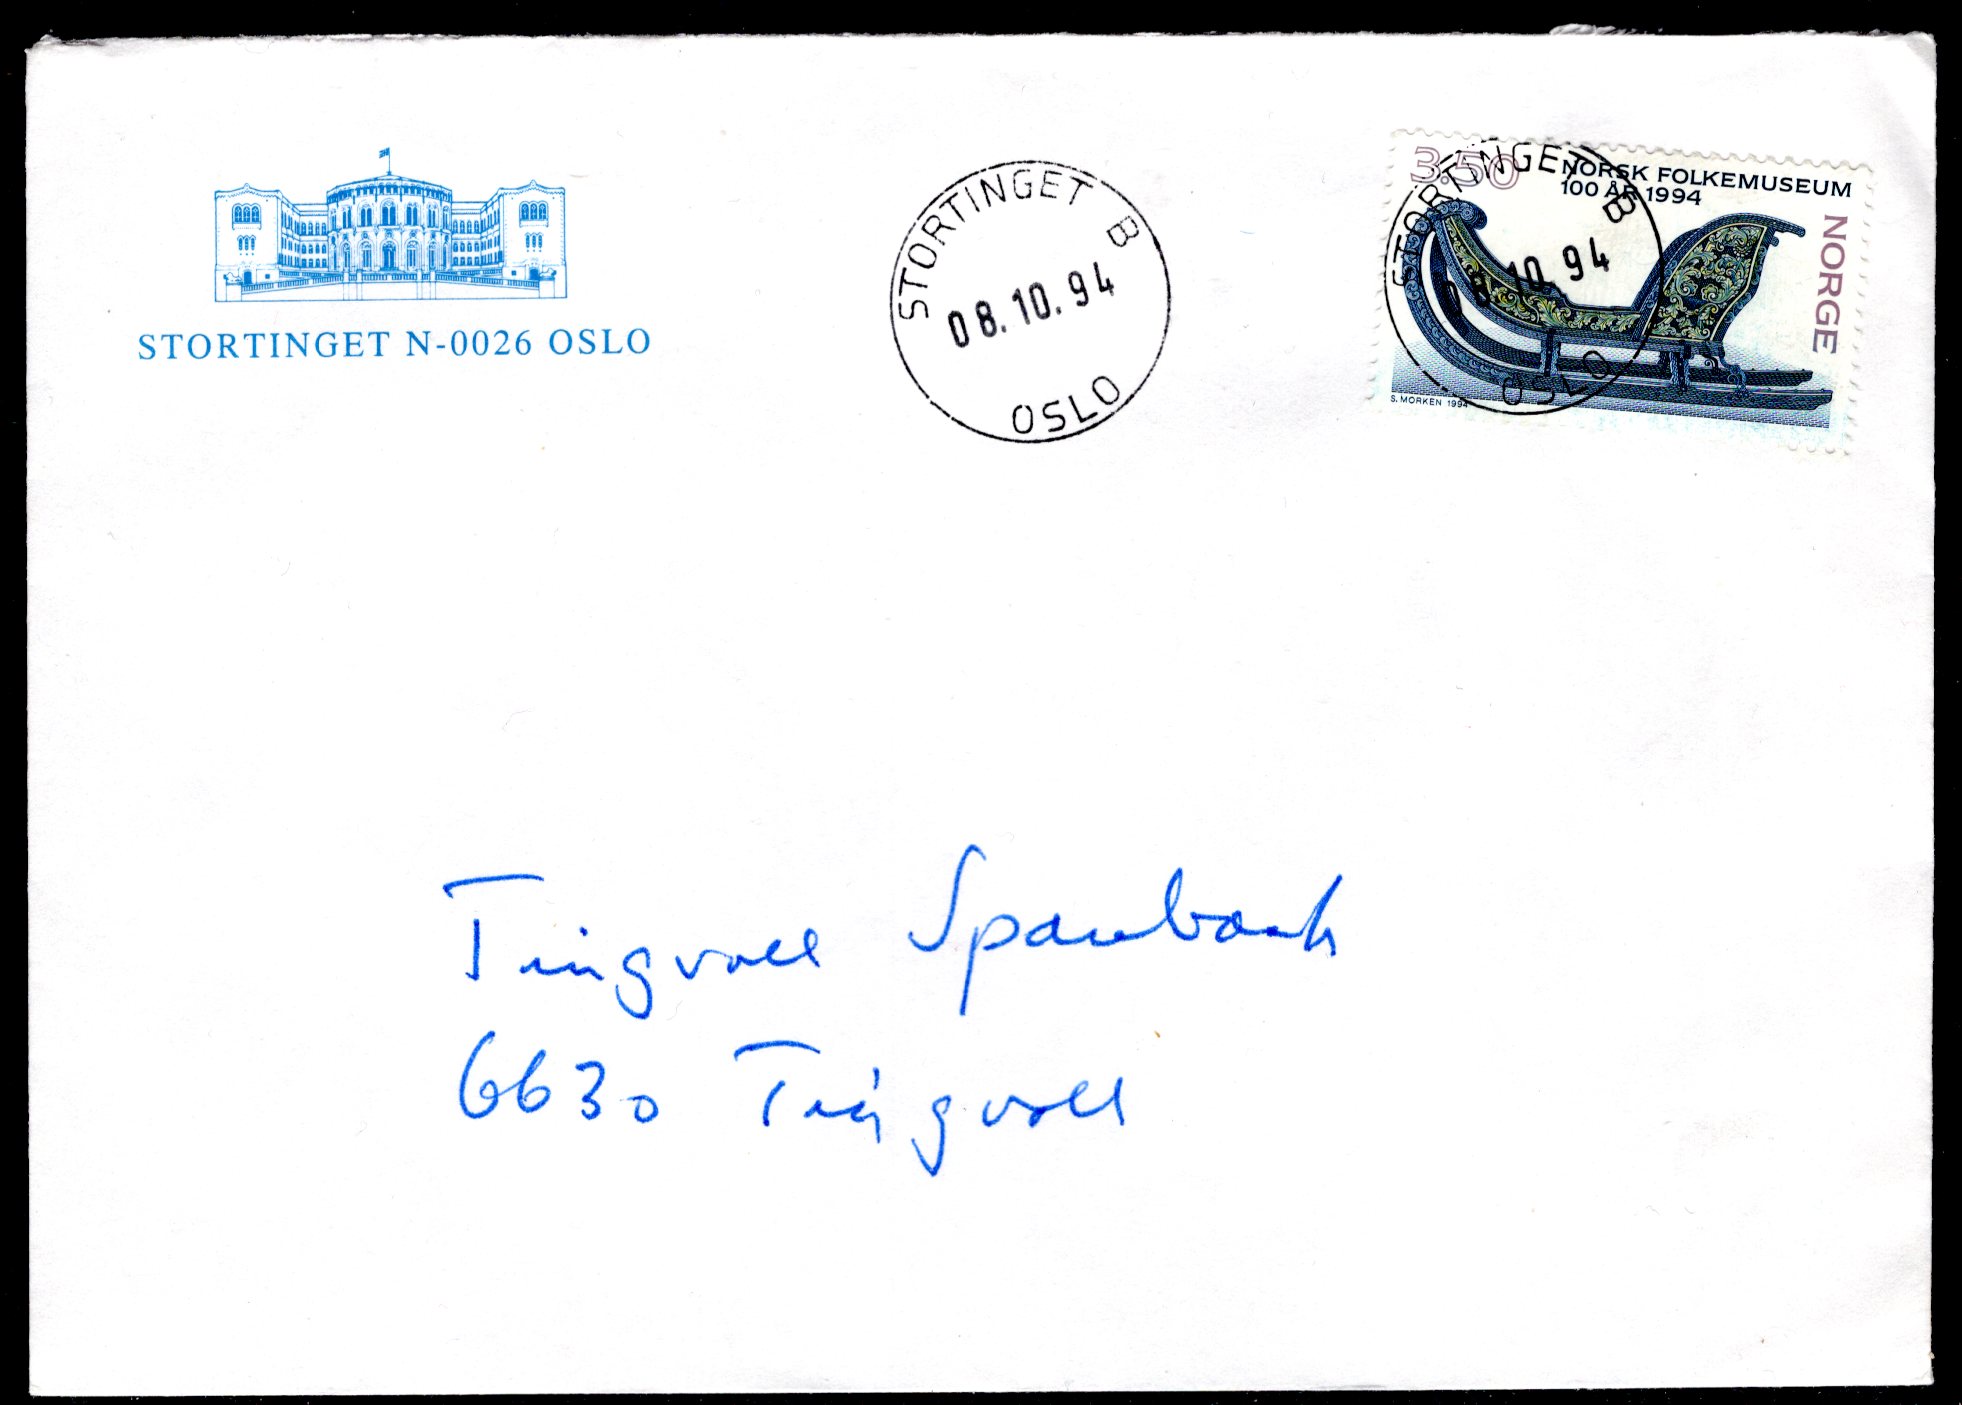 STORTINGET N-0026 OSLO
STORTINGET B
08.10.94
OSLO
3.50
NORSK FOLKEMUSEUM
100 ÅR 1994
NORGE
S. MORKEN 1994
STORTINGET B
08.10.94
OSLO
Tingvoll Sparebank
6630 Tingvoll